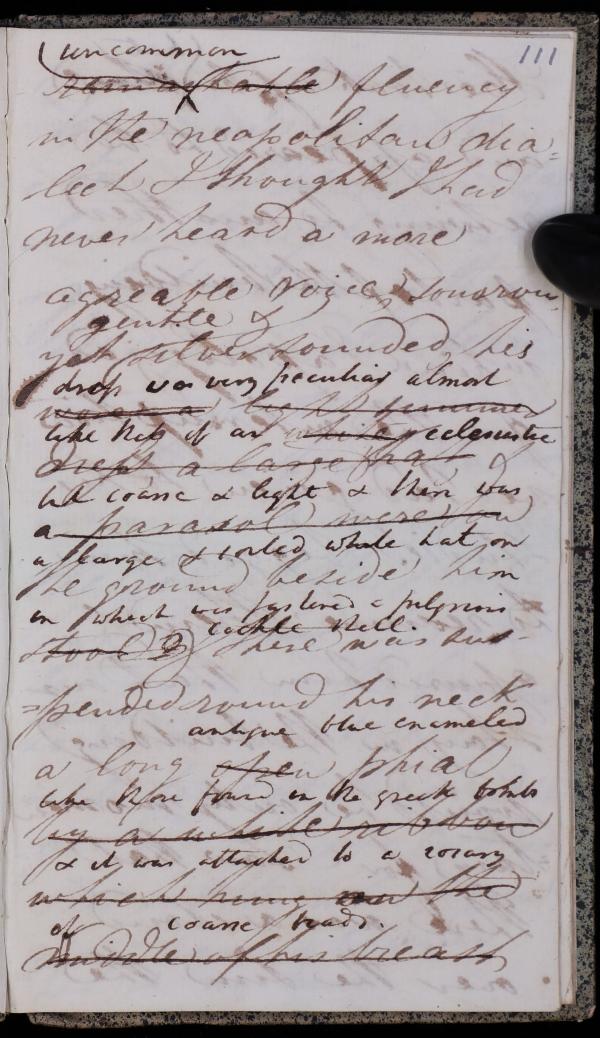 111
uncommon
remarkable fluency
in the neapolitan dia=
lect I thought I had
never heard a more
agreable voice, sonorou
gentle &
yet silver sounded, his
dress was very peculiar almost
were a light summer
like that of an white eclesiastic
dress a large hat
but coarse & light & there was
a parasol were on
a large & soiled white hat on
the ground beside him
on which was fastened a pilgrims
cockle shell.
stood There was sus-
=pended round his neck
antique blue enameled
a long open phial
like those found in the greek tombs
by a white ribbon
& it was attached to a rosary
which hung on the
of coarse beads.
middle of his breast